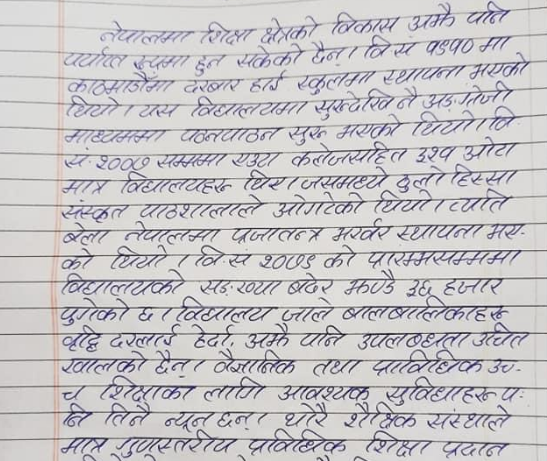 नेपालमा शिक्षा क्षेत्रको विकास अझै पनि
पर्याप्त रूपमा हुन सकेको छैन। वि सं १९१० मा
काठमाडौंमा दरबार हाई स्कुलमा स्थापना भएको
थियो। यस विद्यालयमा सुरुदेखि नै अङ्ग्रेजी
माध्यममा पठनपाठन सुरु भएको थियो। वि
सं. २००७ सम्ममा एउटा कलेजसहित ३२१ ओटा
मात्र विद्यालयहरू थिए। जसमध्ये ठुलो हिस्सा
संस्कृत पाठशालाले ओगटेको थियो। त्यति
बेला नेपालमा प्रजातन्त्र भर्खर स्थापना भए-
को थियो। वि सं २०७९ को प्रारम्भसम्ममा
विद्यालयको सङ्ख्या बढेर झण्डै ३६ हजार
पुगेको छ। विद्यालय जाने बालबालिकाहरू
वृद्धि दरलाई हेर्दा, अझै पनि उपलब्धता उचित
खालको छैन। वैज्ञानिक तथा प्राविधिक उ-
च्च शिक्षाका लागि आवश्यक सुविधाहरू प-
नि तिनै न्यून छन्। थोरै शैक्षिक संस्थाले
मात्र गुणस्तरीय प्राविधिक शिक्षा प्रदान